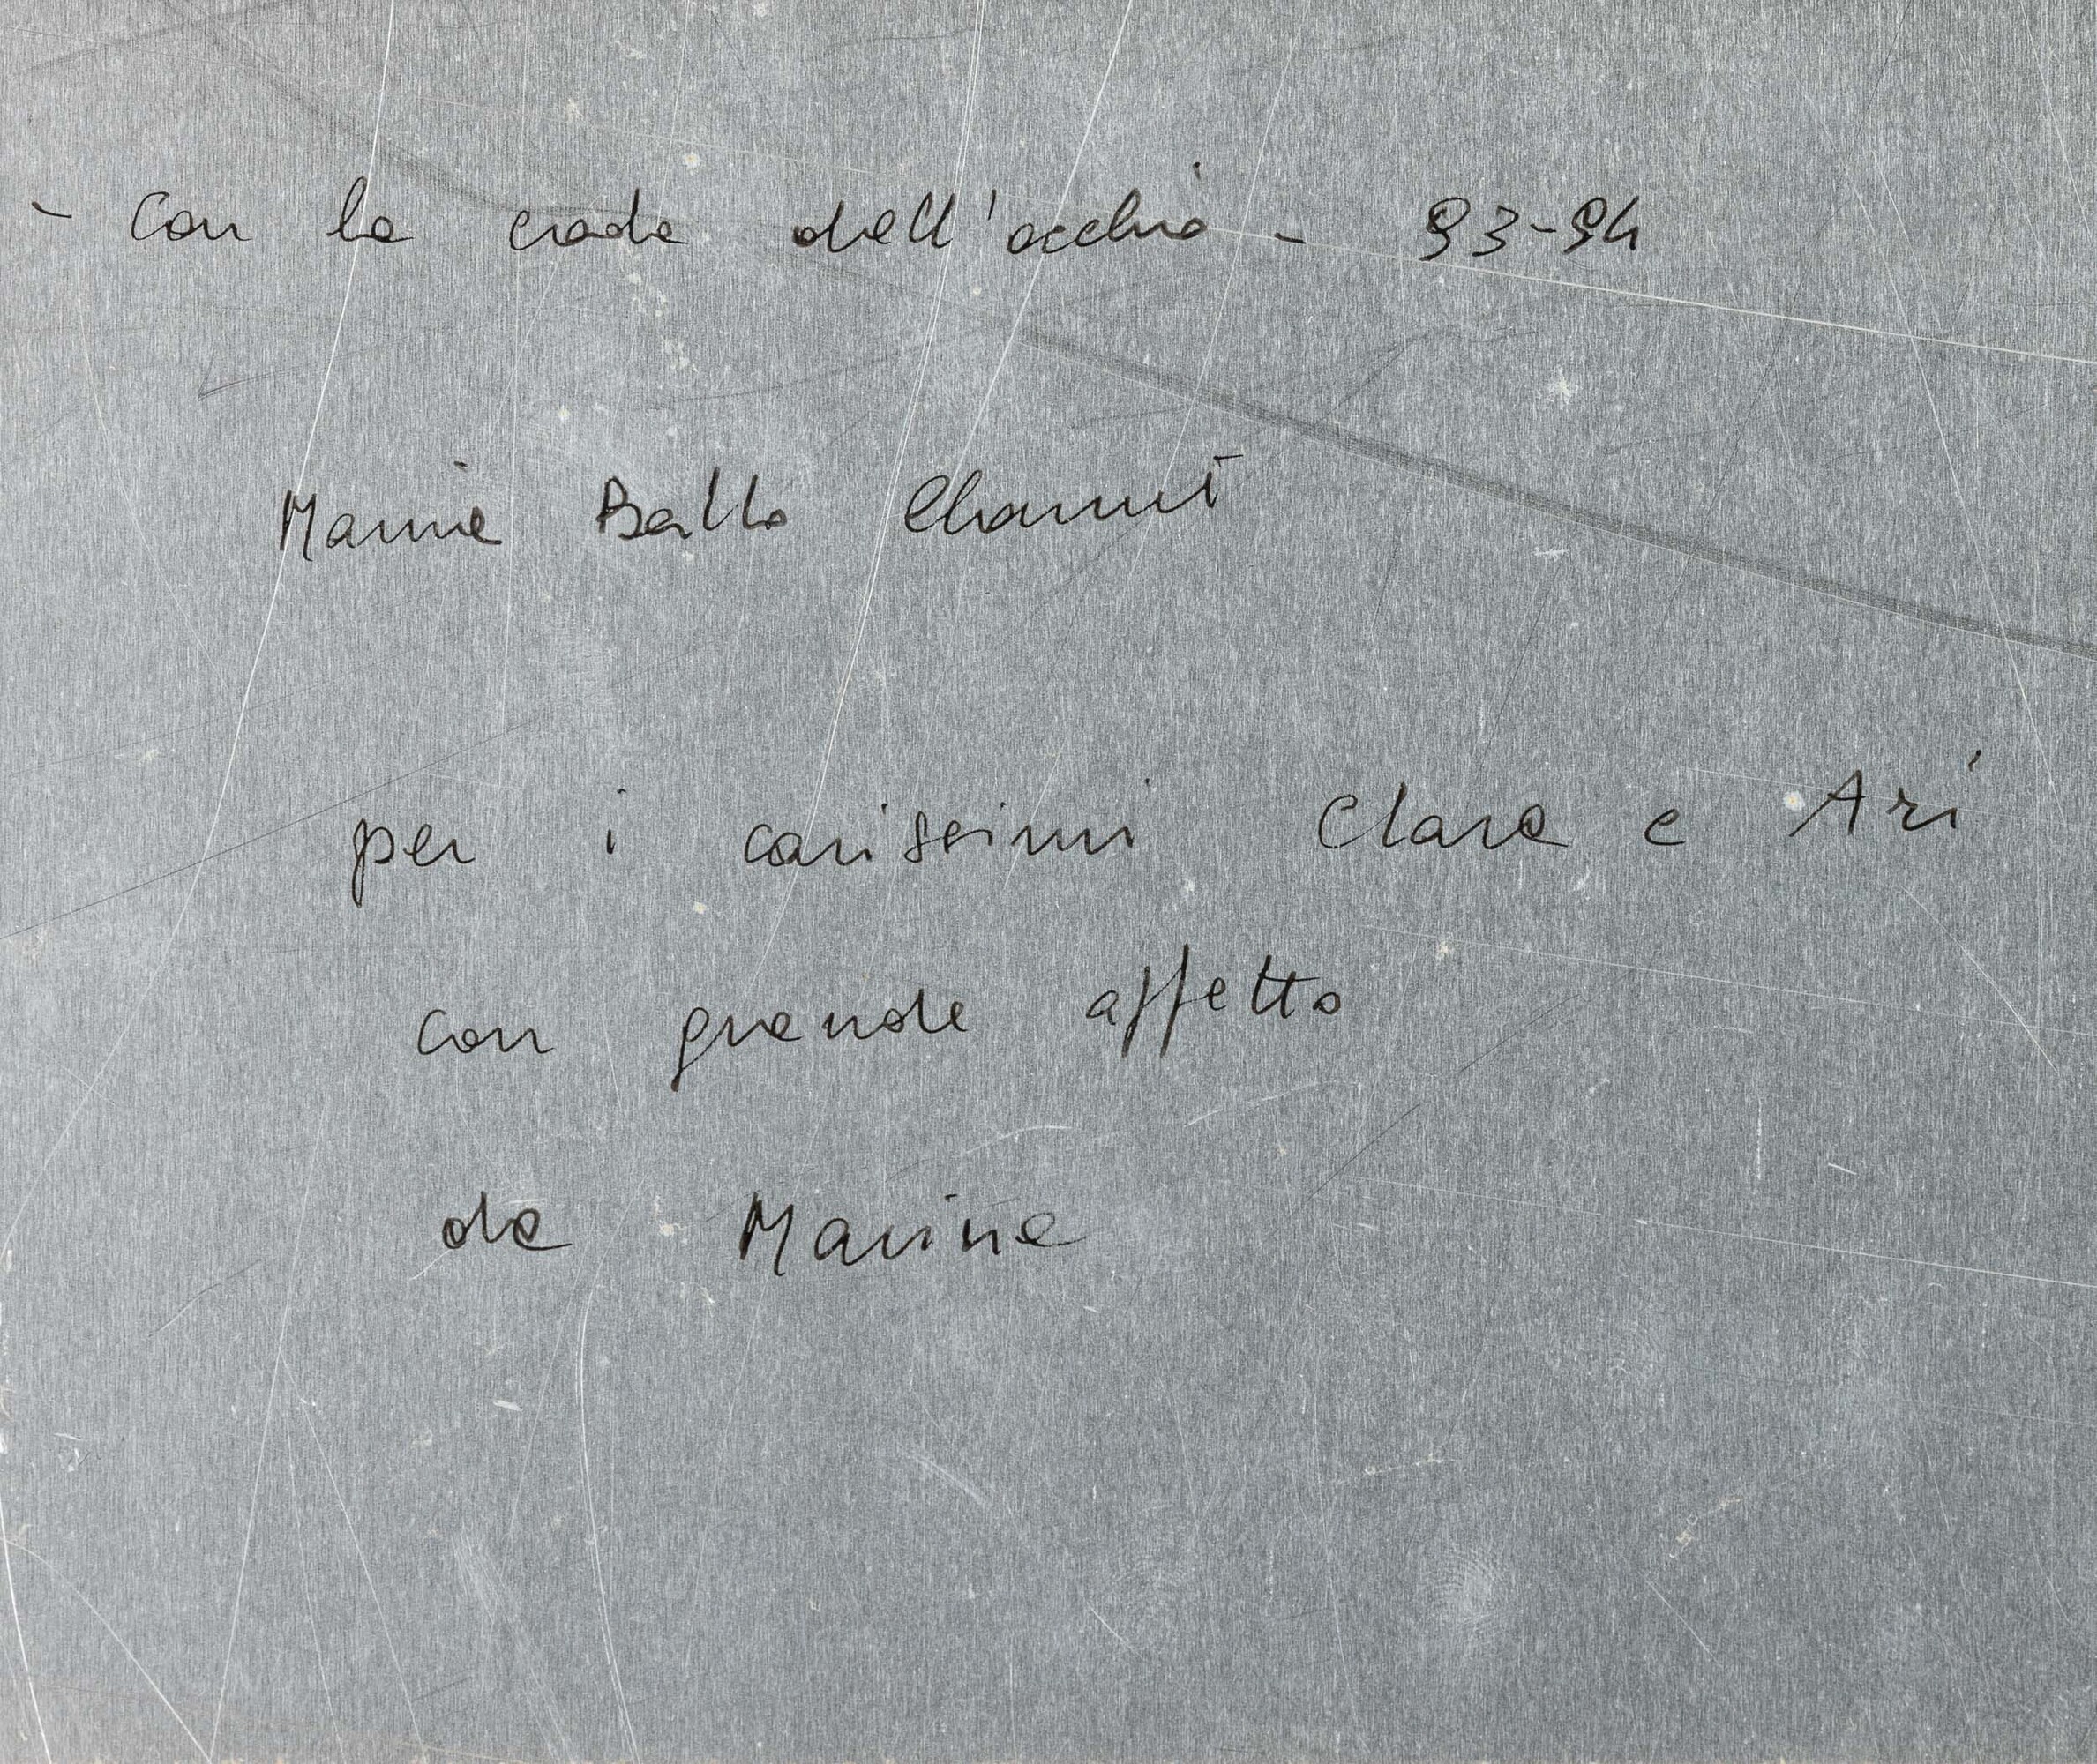 - Con la coda dell'occhio - 93-94
Marina Ballo Charmet
per i carissimi Clara e Ari
con grande affetto
da Marina